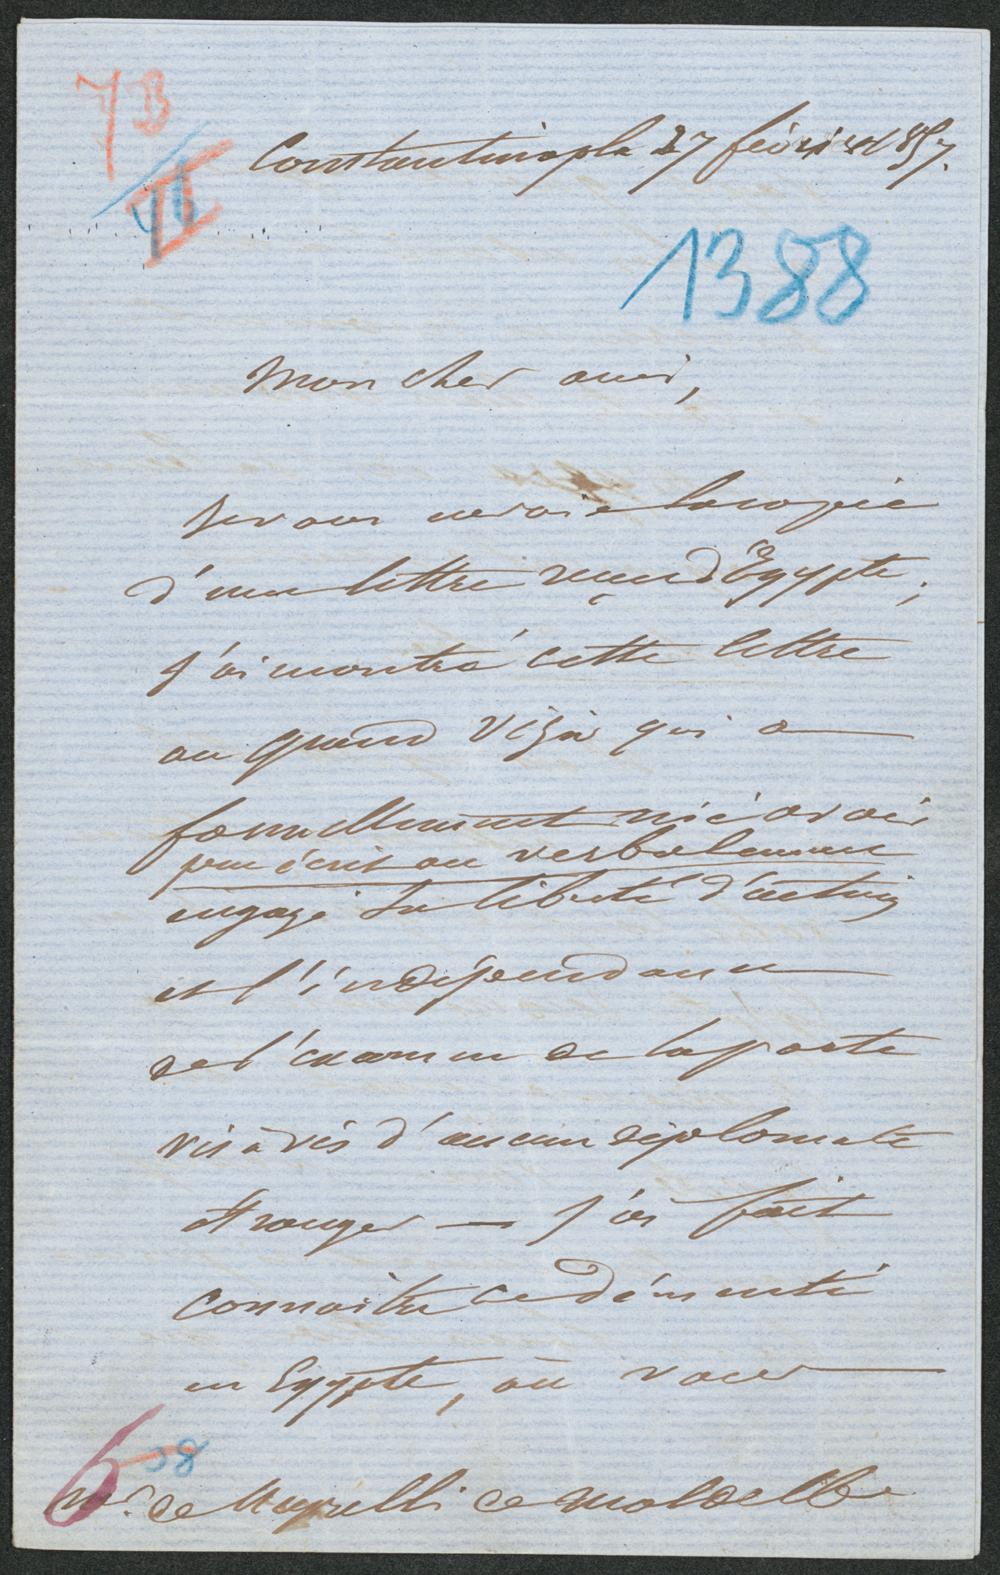 7B
II
Constantinople 27 février 1857.
1388
Mon cher ami,
Je vous envoie la copie
d'une lettre reçue d'Egypte;
J'ai montré cette lettre
au grand Vizir qui a
formellement nié avoir
par écrit ou verbalement
engagé sa liberté d'action
et l'indépendance
de l'examen de la porte
vis à vis d'aucun diplomate
étranger — J'ai fait
connaitre ce démenti
en Egypte, où vous
6 58
Mr. de